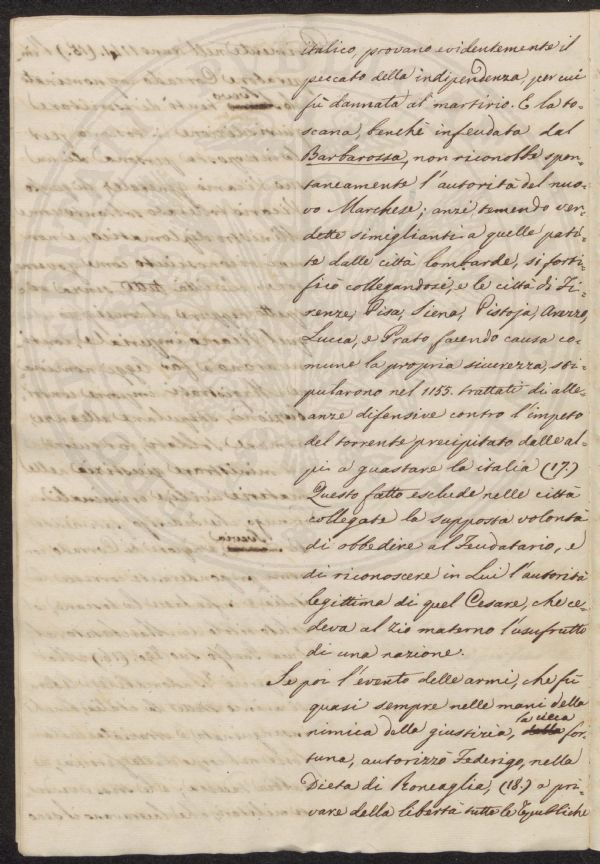 italico, provano evidentemente il
peccato della indipendenza, per cui
fù dannata al martirio. E la to-
scana, benchè infeudata dal
Barbarossa, non riconobbe spon-
taneamente l'autorità del nuo-
vo Marchese; anzi, temendo ven-
dette simiglianti a quelle pati-
te dalle città lombarde, si forti-
ficò collegandosi, e le città di Fi-
renze, Pisa, Siena, Pistoja, Arezzo,
Lucca, e Prato facendo causa co-
mune la propria sicurezza, sti-
pularono nel 1155. trattati di alle-
anze difensive contro l'impeto
del torrente precipitato dalle al-
pi a guastare la italia (17.)
Questo fatto esclude nelle città
collegate la supposta volontà
di obbedire al Feudatario, e
di riconoscere in Lui l'autorità
legittima di quel Cesare, che ce-
deva al Zio materno l'usufrutto
di una nazione.
Se poi l'evento delle armi, che fù
quasi sempre nelle mani della
nimica della giustizia, la cieca for-
tuna, autorizzò Federigo, nella
Dieta di Roncaglia, (18.) a pri-
vare della libertà tutte le republiche